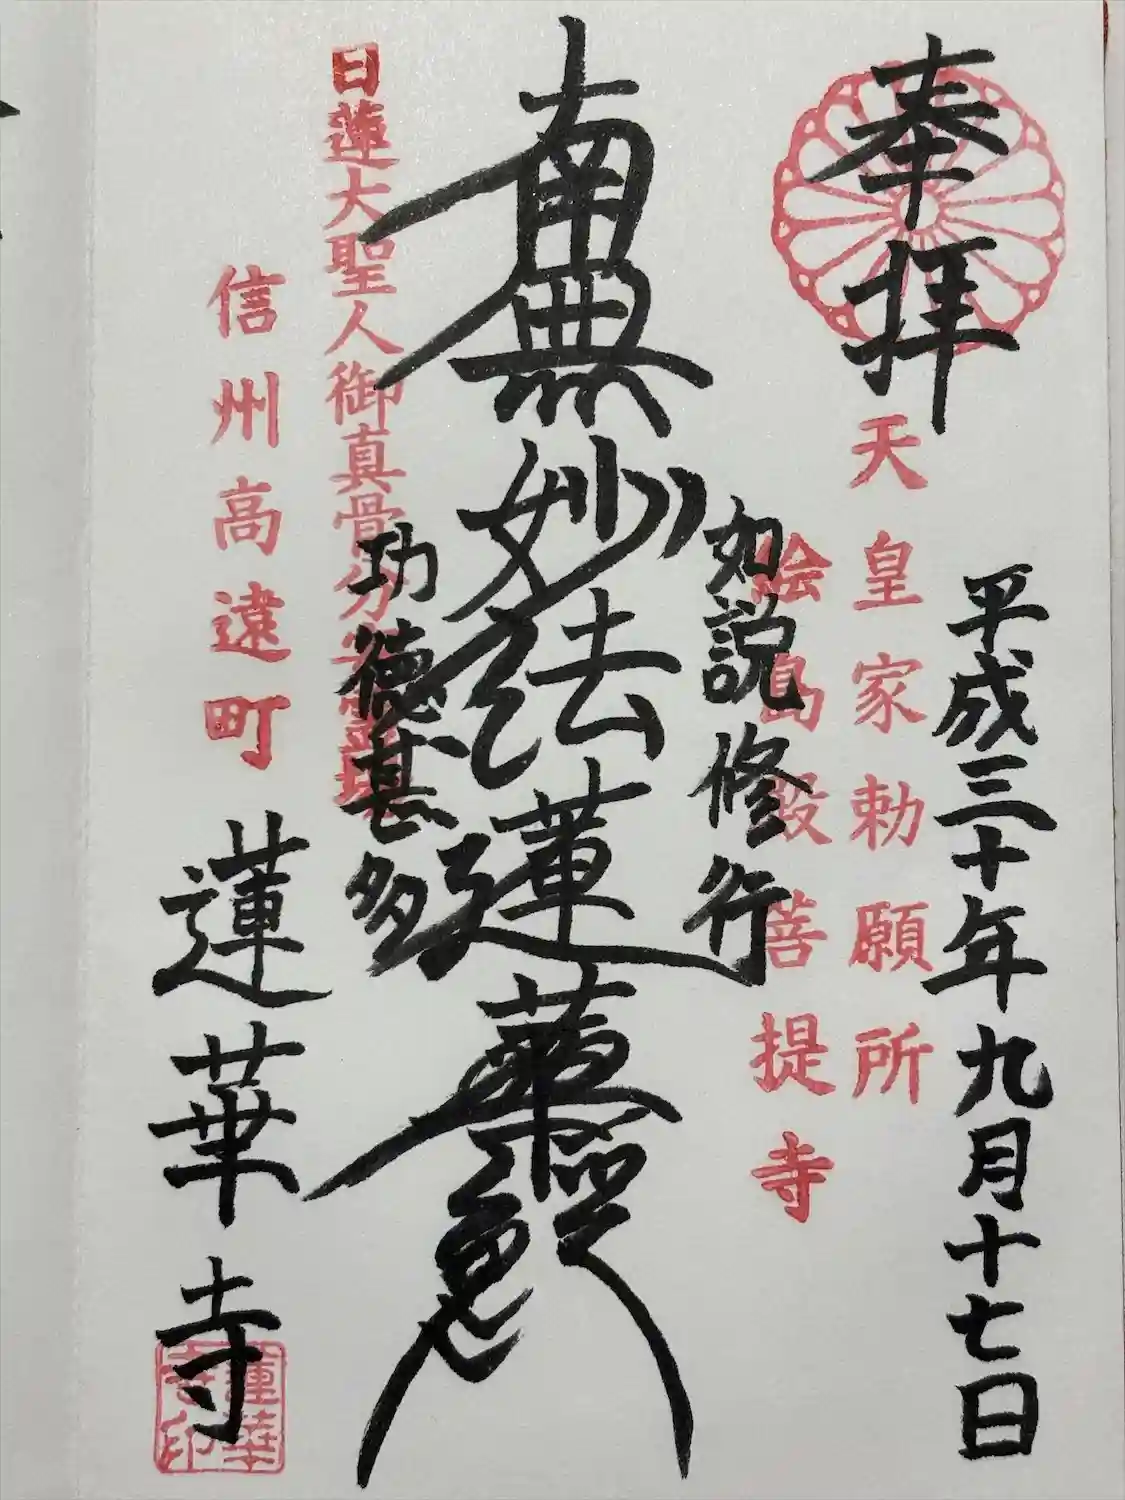 奉拝
平成三十年九月十七日
天皇家勅願所
絵島殿菩提寺
如説修行
南無妙法蓮華経
功徳甚多
日蓮大聖人御真骨分安霊場
信州高遠町
蓮華寺
蓮華寺印